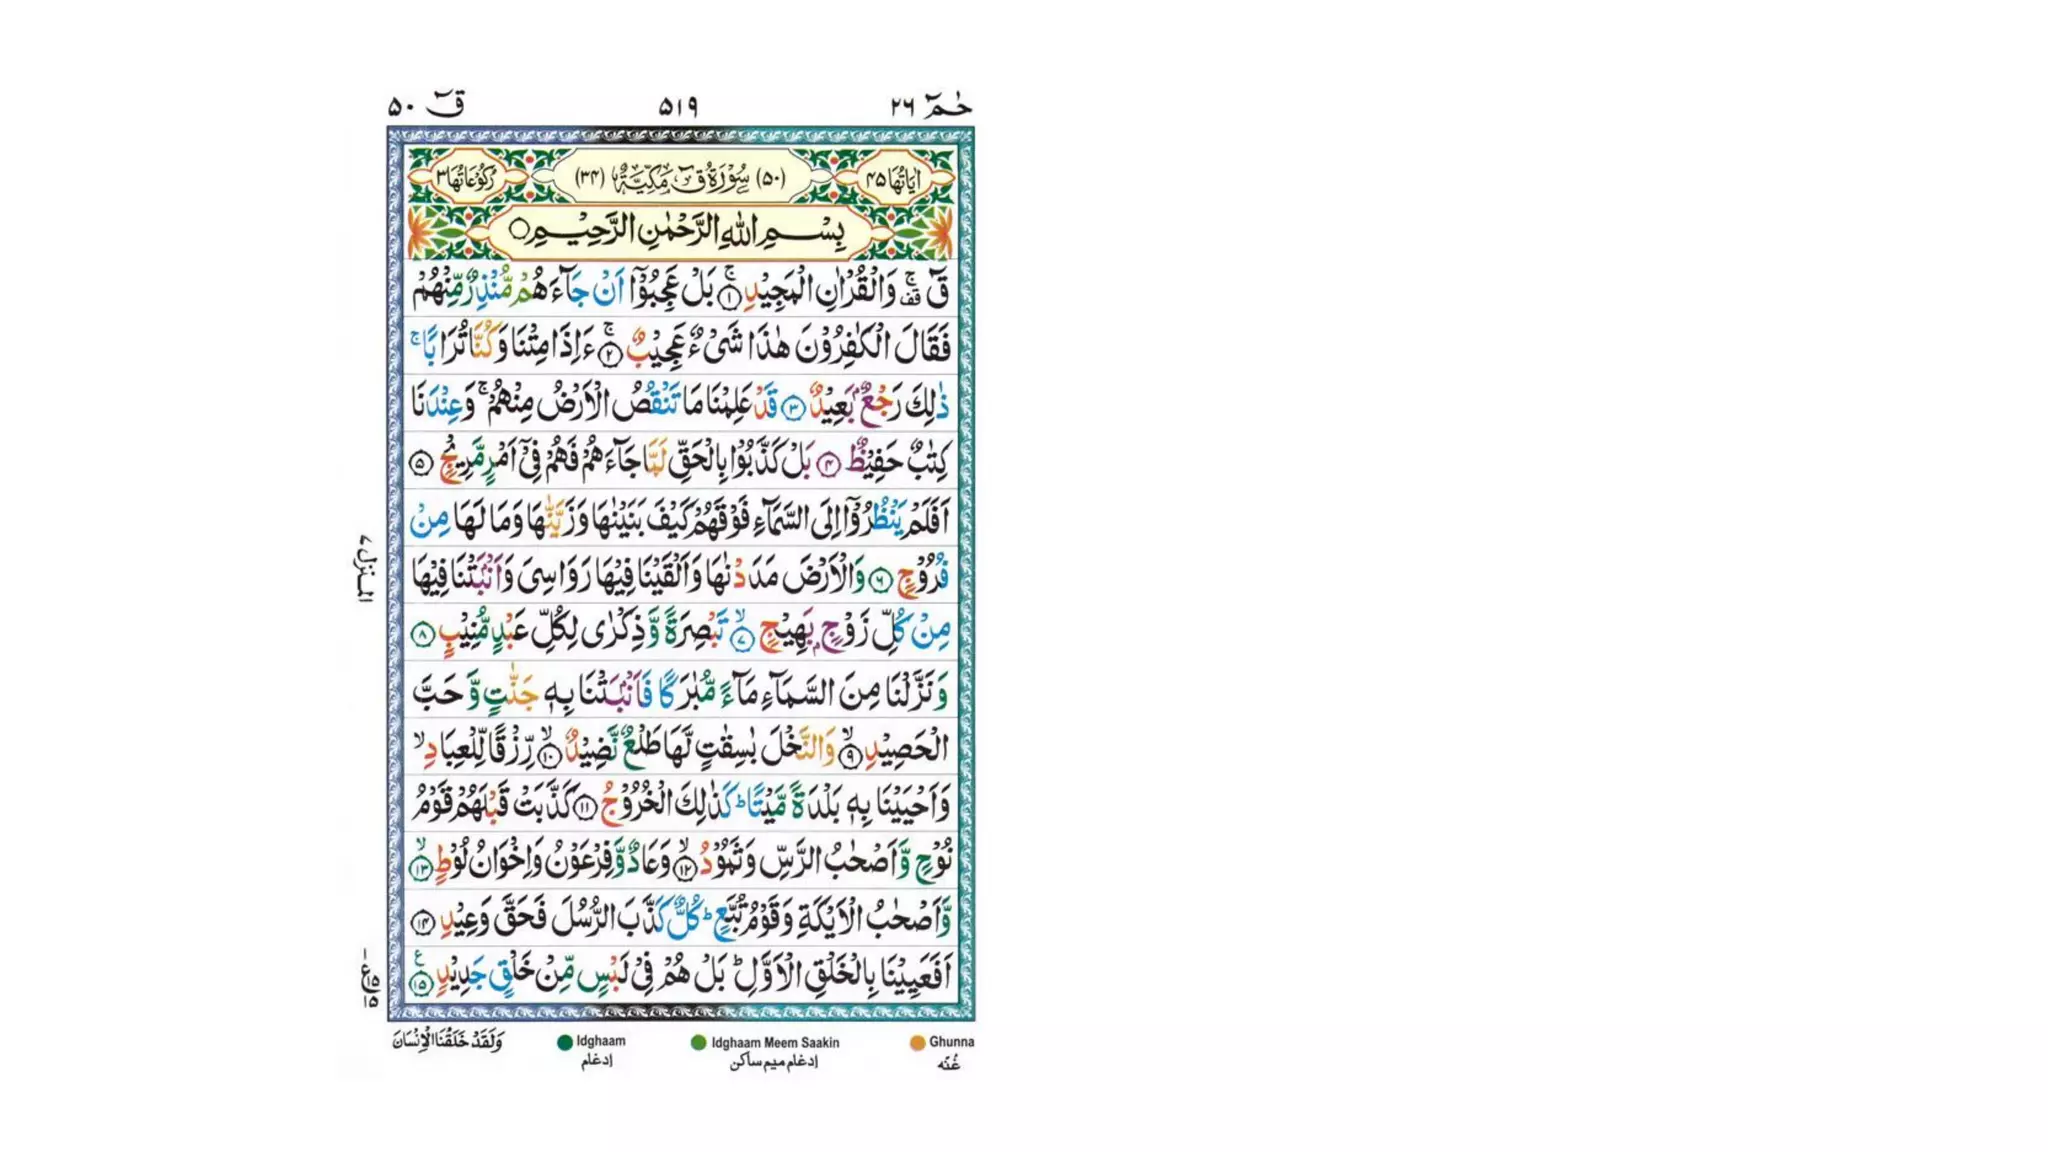 حٰمٓ ٢٦ ٥١٩ قٓ ٥٠
اٰيَاتُهَا ٤٥ (٥٠) سُوْرَةُ قٓ مَكِّيَّةٌ (٣٤) رُكُوْعَاتُهَا ٣
بِسْمِ اللّٰهِ الرَّحْمٰنِ الرَّحِيْمِ ○
قٓ ۚ قف وَالْقُرْاٰنِ الْمَجِيْدِ ۚ ﴿١﴾ بَلْ عَجِبُوْۤا اَنْ جَآءَهُمْ مُّنْذِرٌ مِّنْهُمْ
فَقَالَ الْكٰفِرُوْنَ هٰذَا شَیْءٌ عَجِيْبٌ ۚ ﴿٢﴾ ءَاِذَا مِتْنَا وَكُنَّا تُرَابًا ۚ
ذٰلِكَ رَجْعٌۢ بَعِيْدٌ ﴿٣﴾ قَدْ عَلِمْنَا مَا تَنْقُصُ الْاَرْضُ مِنْهُمْ ۚ وَعِنْدَنَا
كِتٰبٌ حَفِيْظٌ ﴿٤﴾ بَلْ كَذَّبُوْا بِالْحَقِّ لَمَّا جَآءَهُمْ فَهُمْ فِیْۤ اَمْرٍ مَّرِيْجٍ ﴿٥﴾
اَفَلَمْ يَنْظُرُوْۤا اِلَى السَّمَآءِ فَوْقَهُمْ كَيْفَ بَنَيْنٰهَا وَزَيَّنّٰهَا وَمَا لَهَا مِنْ
فُرُوْجٍ ﴿٦﴾ وَالْاَرْضَ مَدَدْنٰهَا وَاَلْقَيْنَا فِيْهَا رَوَاسِیَ وَاَنْۢبَتْنَا فِيْهَا
مِنْ كُلِّ زَوْجٍۭ بَهِيْجٍ ۙ ﴿٧﴾ تَبْصِرَةً وَّذِكْرٰى لِكُلِّ عَبْدٍ مُّنِيْبٍ ﴿٨﴾
وَنَزَّلْنَا مِنَ السَّمَآءِ مَآءً مُّبٰرَكًا فَاَنْۢبَتْنَا بِهٖ جَنّٰتٍ وَّحَبَّ
الْحَصِيْدِ ۙ ﴿٩﴾ وَالنَّخْلَ بٰسِقٰتٍ لَّهَا طَلْعٌ نَّضِيْدٌ ۙ ﴿١٠﴾ رِّزْقًا لِّلْعِبَادِ ۙ
وَاَحْيَيْنَا بِهٖ بَلْدَةً مَّيْتًا ؕ كَذٰلِكَ الْخُرُوْجُ ﴿١١﴾ كَذَّبَتْ قَبْلَهُمْ قَوْمُ
نُوْحٍ وَّاَصْحٰبُ الرَّسِّ وَثَمُوْدُ ۙ ﴿١٢﴾ وَعَادٌ وَّفِرْعَوْنُ وَاِخْوَانُ لُوْطٍ ۙ ﴿١٣﴾
وَّاَصْحٰبُ الْاَيْكَةِ وَقَوْمُ تُبَّعٍ ؕ كُلٌّ كَذَّبَ الرُّسُلَ فَحَقَّ وَعِيْدِ ﴿١٤﴾
اَفَعَيِيْنَا بِالْخَلْقِ الْاَوَّلِ ؕ بَلْ هُمْ فِیْ لَبْسٍ مِّنْ خَلْقٍ جَدِيْدٍ ﴿١٥﴾ ع
المنزل ٧
وَلَقَدْ خَلَقْنَا الْاِنْسَانَ
Idghaam
إدغام
Idghaam Meem Saakin
إدغام ميم ساكن
Ghunna
غُنّه